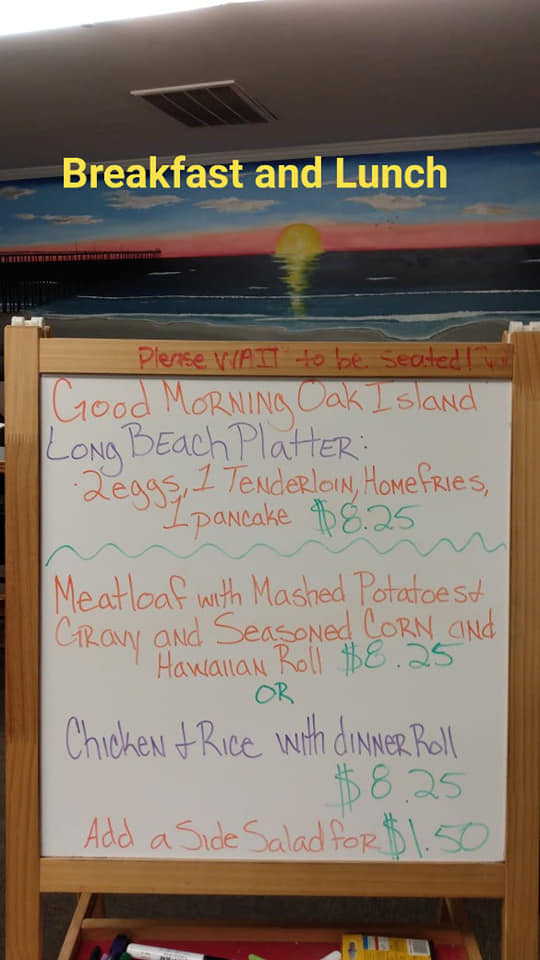 Breakfast and Lunch
Please WAIT to be seated!
Good Morning Oak Island
Long Beach Platter:
2eggs, 1 Tenderloin, Homefries,
1 pancake $8.25
Meatloaf with Mashed Potatoes &
Gravy and Seasoned Corn and
Hawaiian Roll $8.25
OR
Chicken & Rice with dinner Roll
$8.25
Add a Side Salad for $1.50